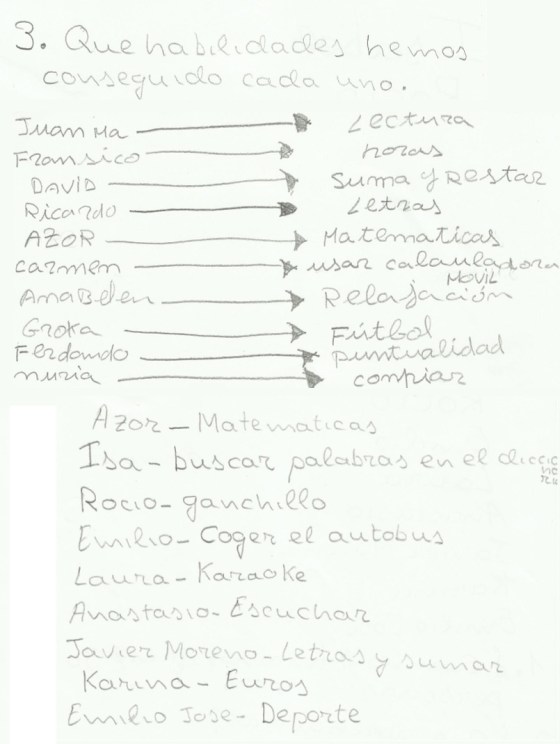 3. Que habilidades hemos
conseguido cada uno.
Juan Ma → Lectura
Fransico → horas
DAVID → Suma y Restar
Ricardo → Letras
AZOR → Matematicas
carmen → usar calauladora
MOVIL
AnaBelen → Relajación
Groka → Fútbol
Ferdando → puntualidad
nuria → compiar
Azor - Matematicas
Isa - buscar palabras en el
Rocio - ganchillo
Emilio - Coger el autobus
Laura - Karaoke
Anastasio - Escuchar
Javier Moreno - Letras y sumar
Karina - Euros
Emilio Jose - Deporte